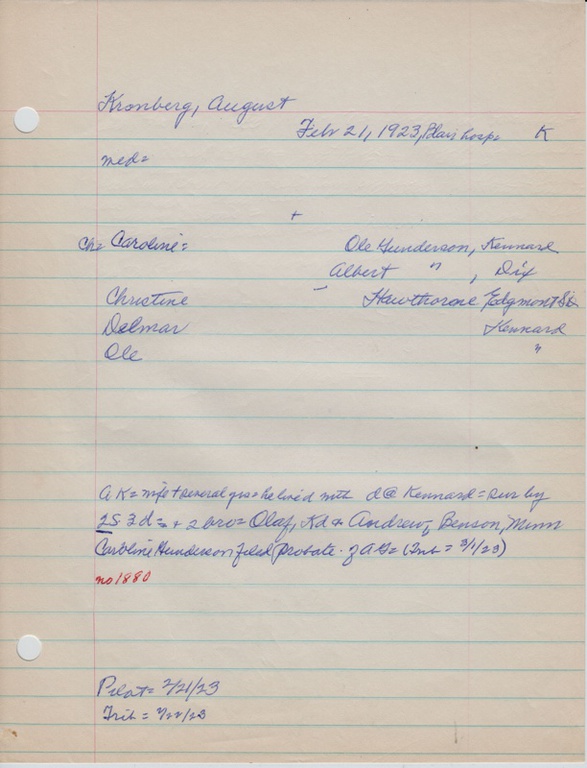 Kronberg, August
Feb 21, 1923, Blair hosp= K
med=
+
Ch= Caroline= Ole Gunderson, Kennard
Albert " , Dix
Christine Hawthorone Edgmont SD
Delmar Kennard
Ole "
AK= wife + several yrs= he lived with d @ Kennard= sur by
2S 3d= + 2 bro= Olaf, Kd + Andrew, Benson, Minn
Caroline Gunderson filed probate. of AK= (Trib= 3/1/23)
no 1880
Pilot= 2/21/23
Trib= 2/22/23